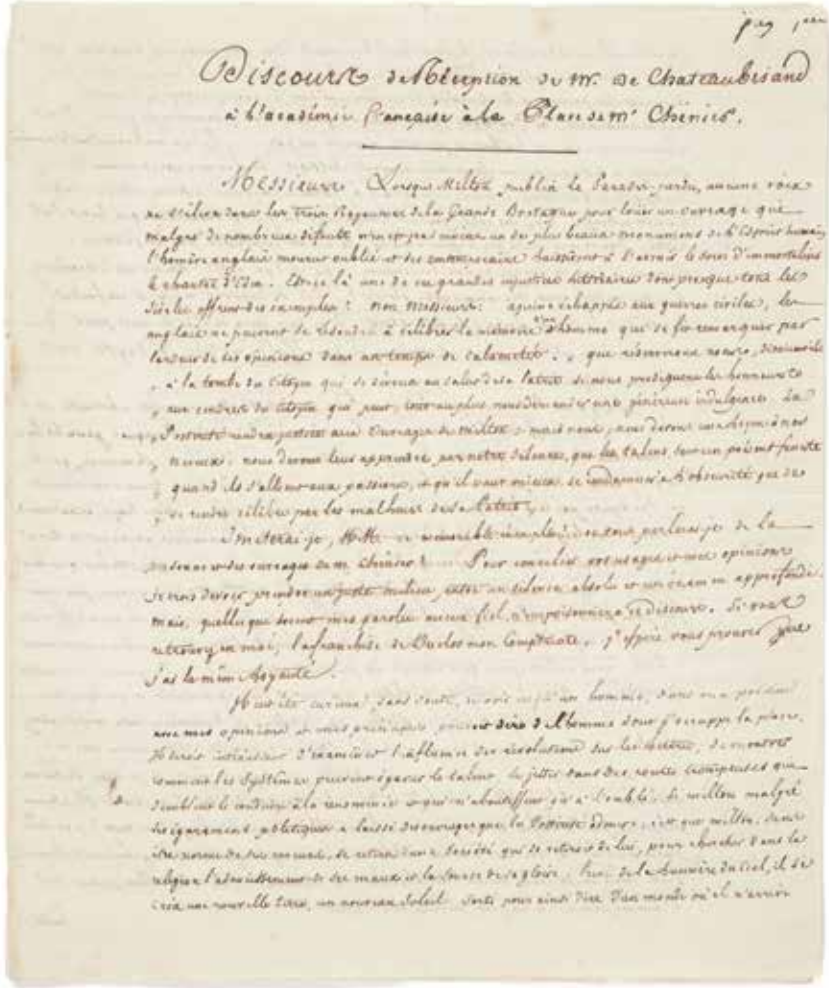 pag 1ere
Discours de Réception de Mr. De Chateaubriand
à l'académie française à la Place de mr Chénier.
Messieurs, Lorsque Milton publia le Paradis perdu, aucune voix
ne s'éleva dans les trois Royaumes de la Grande Bretagne pour louer un ouvrage que
malgré de nombreux défauts n'en est pas moins un des plus beaux monuments de l'Esprit humain,
l'homère anglais mourut oublié et ses contemporains laissèrent à l'avenir le soin d'immortaliser
le chantre d'Eden. Est-ce là une de ces grandes injustices littéraires dont presque tous les
siècles offrent des exemples? non Messieurs: à peine échappés aux guerres civiles, les
anglais ne purent se résoudre à célébrer la mémoire d'un homme qui se fit remarquer par
l'ardeur de ses opinions dans un temps de calamités. que réserverons nous,
à la tombe du Citoyen qui se dévoue au salut de sa Patrie si nous prodiguons les honneurs
aux cendres du Citoyen qui peut, tout au plus nous demander une généreuse indulgence. La
Postérité rendra justice aux ouvrages de Milton; mais nous, nous devons une leçon à nos
neveux. nous devons leur apprendre par notre silence, que les talens sont un présent funeste
quand ils s'allient aux passions, et qu'il vaut mieux se condamner à l'obscurité que de
se rendre célèbre par les malheurs de sa Patrie.
Imiterai-je, MM. ce mémorable exemple? ou vous parlerai-je de la
personne et des ouvrages de m. Chénier? Pour concilier vos usages et mes opinions
je crois devoir prendre un juste milieu entre un silence absolu et un examen approfondi.
mais, quelles que soient mes paroles aucun fiel n'empoisonnera ce discours. Si vous
retrouvez en moi, la franchise de Duclos mon Compatriote, j'espère vous prouver que
j'ai la même loyauté.
Il eut été curieux, sans doute, de voir ce qu'un homme, dans ma position
avec mes opinions et mes principes, pouvait dire de l'homme dont j'occupe la place.
Il serait intéressant d'examiner l'influence des révolutions sur les lettres, de montrer
comment les systèmes peuvent égarer le talent, le jetter dans des routes trompeuses qui
semblent le conduire à la renommée et qui n'aboutissent qu'à l'oubli. Si milton malgré
ses égaremens politiques a laissé des ouvrages que la Postérité admire, c'est que milton, sans
être revenu de ses erreurs, se retira d'une société qui se retirait de lui, pour chercher dans la
religion l'adoucissement de ses maux et la source de sa gloire. Privé de la lumière du ciel, il se
créa une nouvelle terre, un nouveau soleil. sortit pour ainsi dire d'un monde où il n'avait